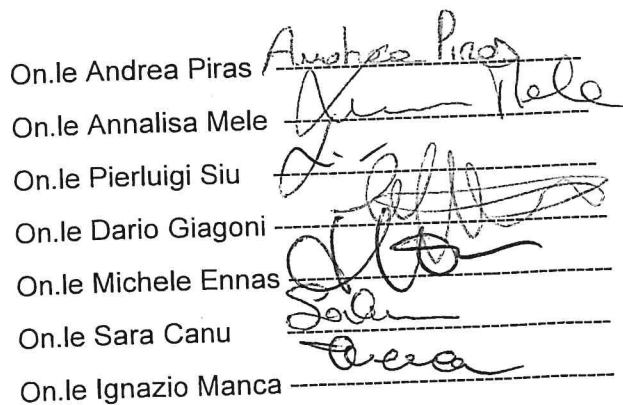 On.le Andrea Piras Andrea Piras
On.le Annalisa Mele Mele
On.le Pierluigi Siu
On.le Dario Giagoni
On.le Michele Ennas
On.le Sara Canu Sara
On.le Ignazio Manca